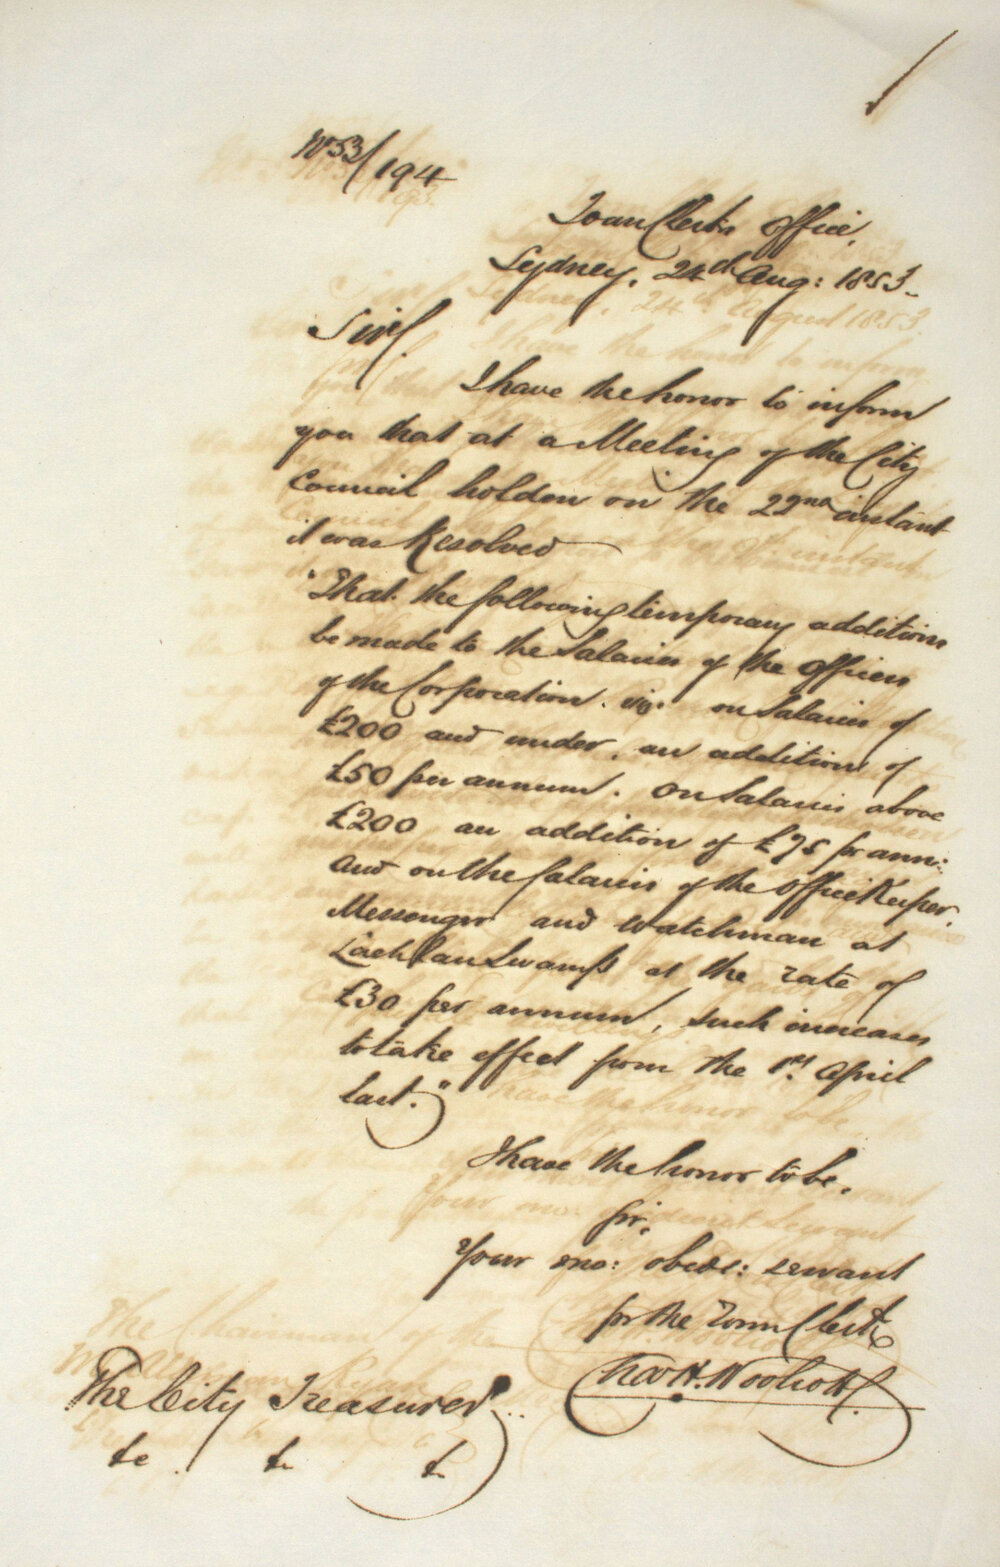 No 53/194
Town Clerks Office,
Sydney, 24th Aug: 1853.
Sir,
I have the honor to inform
you that at a Meeting of the City
Council holden on the 22nd instant
it was Resolved
"That the following temporary additions
be made to the Salaries of the Officers
of the Corporation. viz: on Salaries of
£200 and under, an addition of
£50 per annum. On Salaries above
£200 an addition of £75 pr ann:
and on the Salaries of the Office Keeper,
Messenger and Watchman at
Lachlan Swamps at the rate of
£30 per annum, such increases
to take effect from the 1st. April
last."
I have the honor to be,
Sir,
Your mo: obedt: servant
for the Town Clerk
Chas H. Woolcott
The City Treasurer
&c &c &c